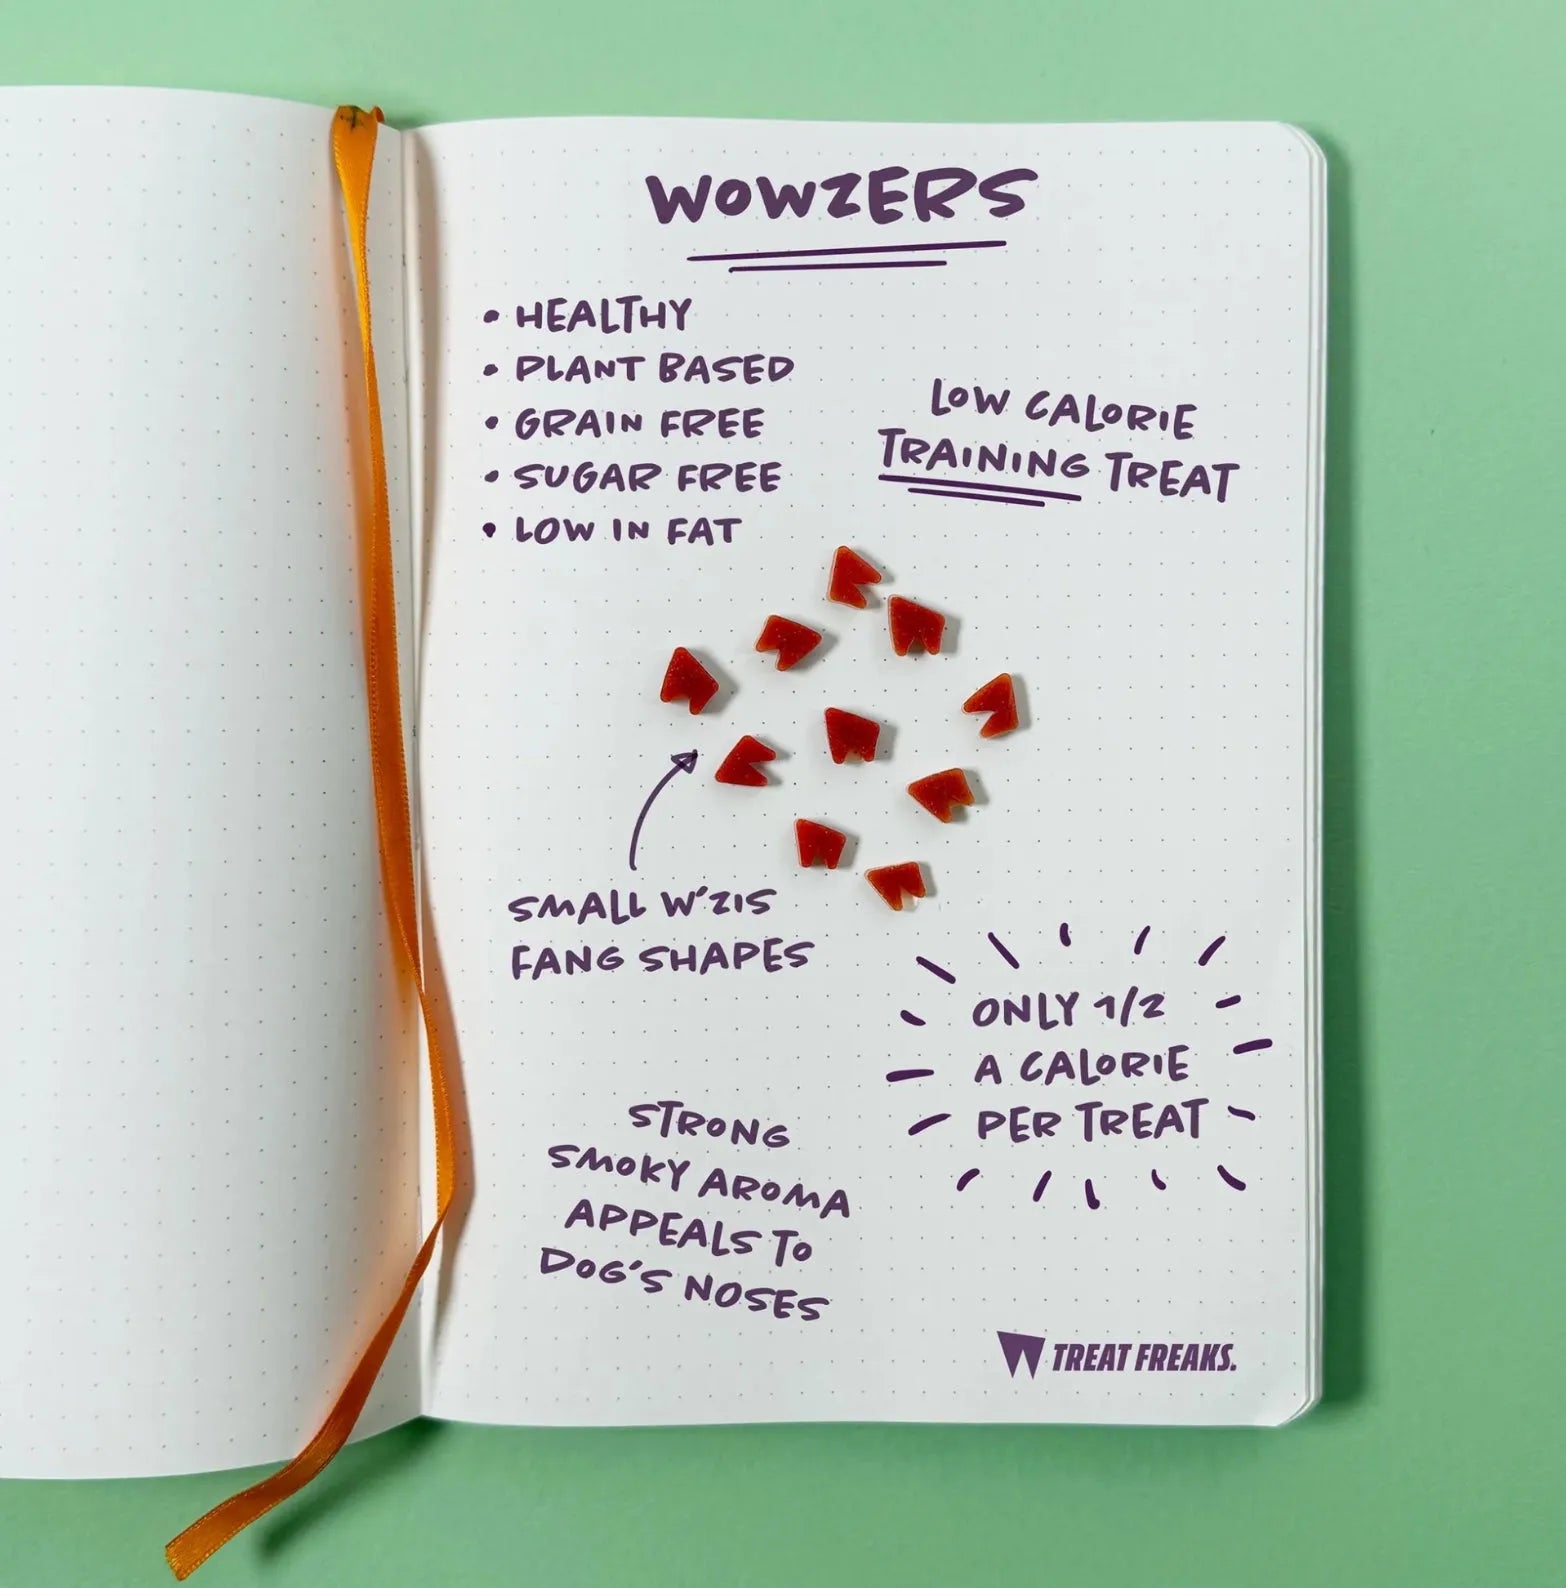 WOWZERS
• HEALTHY
• PLANT BASED
• GRAIN FREE
• SUGAR FREE
• LOW IN FAT
LOW CALORIE
TRAINING TREAT
SMALL W'ZIS
FANG SHAPES
ONLY 1/2
A CALORIE
PER TREAT
STRONG
SMOKY AROMA
APPEALS TO
DOG'S NOSES
TREAT FREAKS.